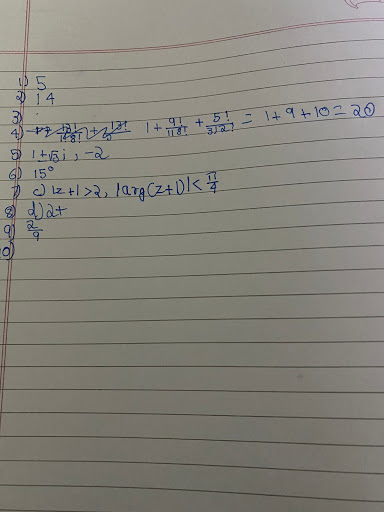 1) 5
2) 14
3) .
4) 1 + 9!/1!8! + 5!/3!2! = 1+9+10 = 20
5) 1+√3i, -2
6) 15°
7 c) |z+1|>2, |arg(z+1)|< π/4
8) d) 2t
9) 2/9
10)